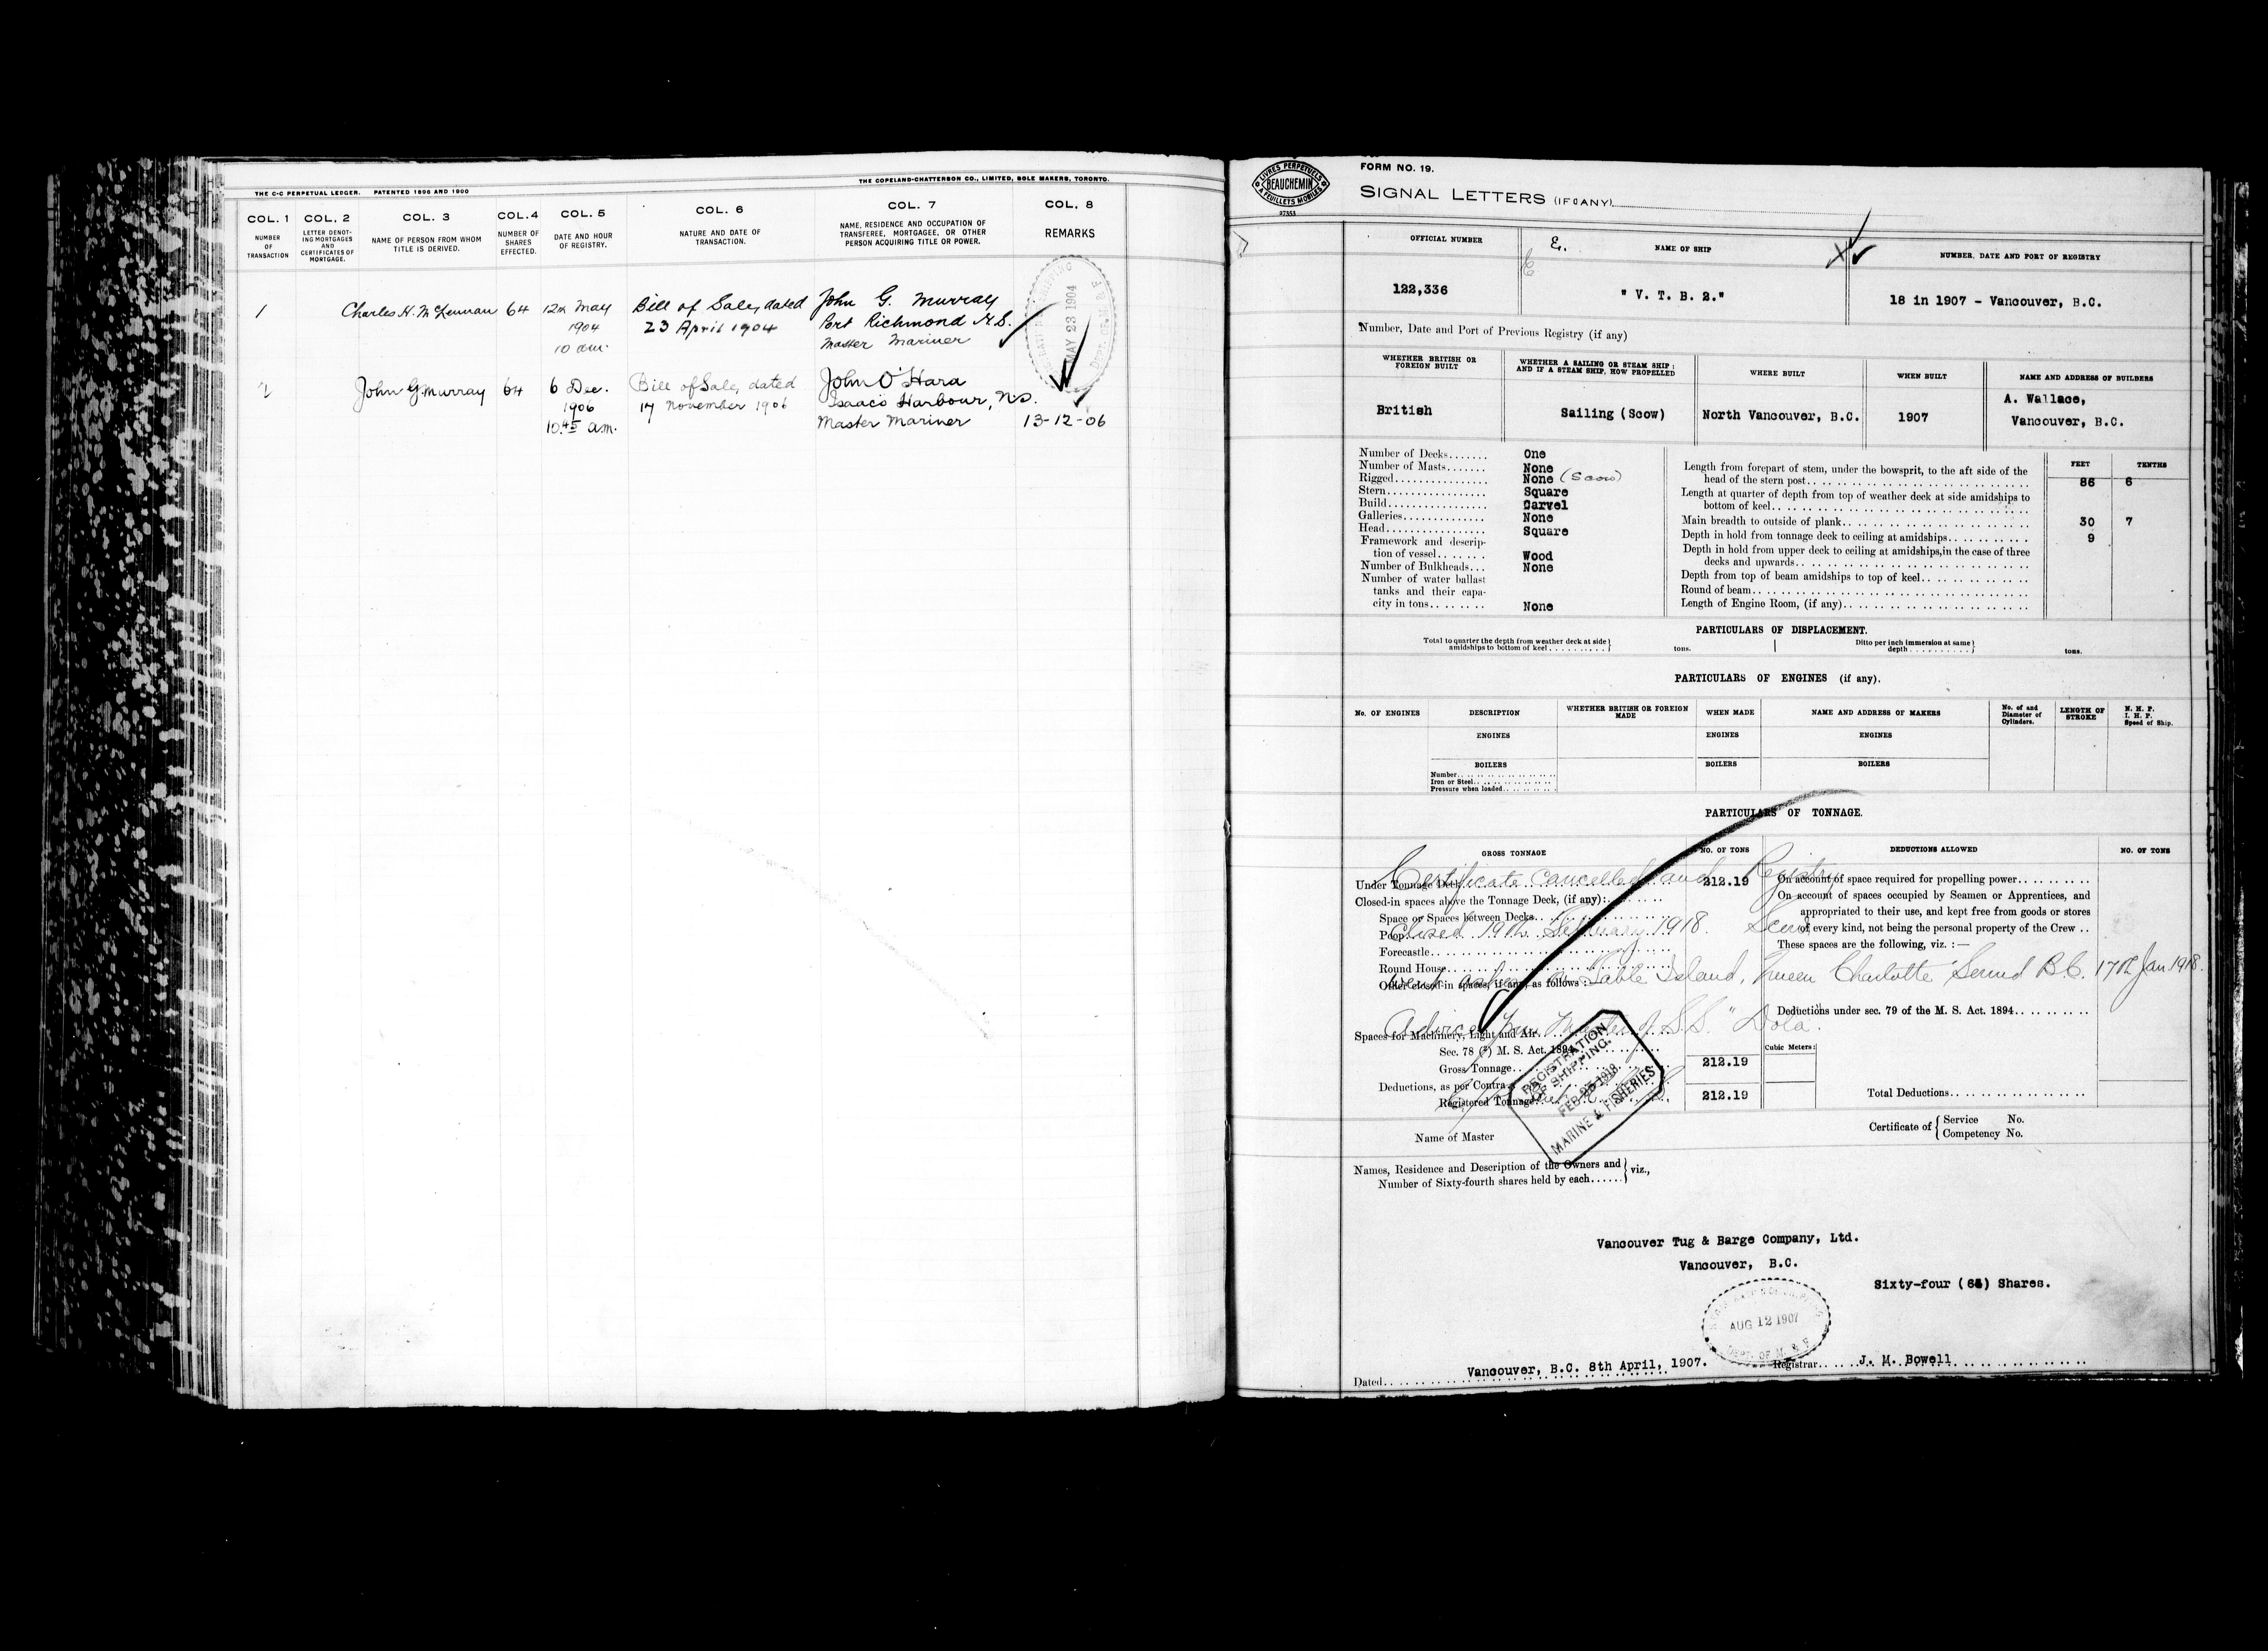 THE C-C PERPETUAL LEDGER. PATENTED 1896 AND 1900
THE COPELAND-CHATTERSON CO., LIMITED, SOLE MAKERS, TORONTO.
COL. 1 COL. 2 COL. 3 COL. 4 COL. 5 COL. 6 COL. 7 COL. 8
NUMBER OF TRANSACTION
LETTER DENOTING MORTGAGES AND CERTIFICATES OF MORTGAGE.
NAME OF PERSON FROM WHOM TITLE IS DERIVED.
NUMBER OF SHARES EFFECTED.
DATE AND HOUR OF REGISTRY.
NATURE AND DATE OF TRANSACTION.
NAME, RESIDENCE AND OCCUPATION OF TRANSFEREE, MORTGAGEE, OR OTHER PERSON ACQUIRING TITLE OR POWER.
REMARKS
1 Charles H. McLennan 64 12th May Bill of Sale, dated John G. Murray
1904 23 April 1904 Port Richmond N.S.
10 am. Master Mariner
MAY 23 1904
2 John G. Murray 64 6 Dec. Bill of Sale, dated John O'Hara
1906 17 November 1906 Isaacs Harbour, N.S.
10.45 a.m. Master Mariner 13-12-06
LIVRES PERPETUELS
BEAUCHEMIN
A FEUILLETS MOBILES
27353
FORM NO. 19.
SIGNAL LETTERS (IF ANY)
OFFICIAL NUMBER NAME OF SHIP NUMBER, DATE AND PORT OF REGISTRY
122,336 " V. T. B. 2." 18 in 1907 - Vancouver, B.C.
Number, Date and Port of Previous Registry (if any)
WHETHER BRITISH OR FOREIGN BUILT
WHETHER A SAILING OR STEAM SHIP: AND IF A STEAM SHIP, HOW PROPELLED
WHERE BUILT
WHEN BUILT
NAME AND ADDRESS OF BUILDERS
British Sailing (Scow) North Vancouver, B.C. 1907 A. Wallace,
Vancouver, B.C.
Number of Decks....... One
Number of Masts....... None
Rigged............... None (Scow)
Stern................. Square
Build................. Carvel
Galleries.............. None
Head................. Square
Framework and description of vessel........ Wood
Number of Bulkheads... None
Number of water ballast tanks and their capacity in tons........ None
FEET TENTHS
Length from forepart of stem, under the bowsprit, to the aft side of the
head of the stern post.......... 86 6
Length at quarter of depth from top of weather deck at side amidships to
bottom of keel..........
Main breadth to outside of plank.......... 30 7
Depth in hold from tonnage deck to ceiling at amidships.......... 9
Depth in hold from upper deck to ceiling at amidships, in the case of three
decks and upwards..........
Depth from top of beam amidships to top of keel..........
Round of beam..........
Length of Engine Room, (if any)..........
PARTICULARS OF DISPLACEMENT.
Total to quarter the depth from weather deck at side
amidships to bottom of keel.......... tons.
Ditto per inch immersion at same
depth.......... tons.
PARTICULARS OF ENGINES (if any).
No. OF ENGINES DESCRIPTION WHETHER BRITISH OR FOREIGN MADE WHEN MADE NAME AND ADDRESS OF MAKERS No. of and Diameter of Cylinders. LENGTH OF STROKE N. H. P. I. H. P. Speed of Ship.
ENGINES ENGINES ENGINES
BOILERS BOILERS BOILERS
Number..........
Iron or Steel..........
Pressure when loaded..........
PARTICULARS OF TONNAGE.
GROSS TONNAGE NO. OF TONS DEDUCTIONS ALLOWED NO. OF TONS
Certificate cancelled and Registry
Under Tonnage Deck 212.19 On account of space required for propelling power..........
Closed-in spaces above the Tonnage Deck, (if any):
On account of spaces occupied by Seamen or Apprentices, and
Space or Spaces between Decks..
appropriated to their use, and kept free from goods or stores
Closed 19th February 1918. Scow
Poop
of every kind, not being the personal property of the Crew ..
Forecastle..........
These spaces are the following, viz. :—
Round House..........
went ashore on Sable Island, Queen Charlotte Sound B.C. 17th Jan 1918.
Other closed-in spaces, if any, as follows :
Deductions under sec. 79 of the M. S. Act. 1894..........
Advice from Master of S.S. "Dola.
Spaces for Machinery, Light and Air..
Sec. 78 (²) M. S. Act. 1894
Cubic Meters:
Gross Tonnage.. 212.19
Deductions, as per Contra
Registered Tonnage 212.19
Total Deductions..........
REGISTRATION
OF SHIPPING.
FEB 25 1918
MARINE & FISHERIES
Name of Master
Certificate of { Service No.
Competency No.
Names, Residence and Description of the Owners and
Number of Sixty-fourth shares held by each...... } viz.,
Vancouver Tug & Barge Company, Ltd.
Vancouver, B.C.
Sixty-four (64) Shares.
AUG 12 1907
DEPT. OF M. & F.
Dated.. Vancouver, B.C. 8th April, 1907. Registrar.. J. M. Bowell